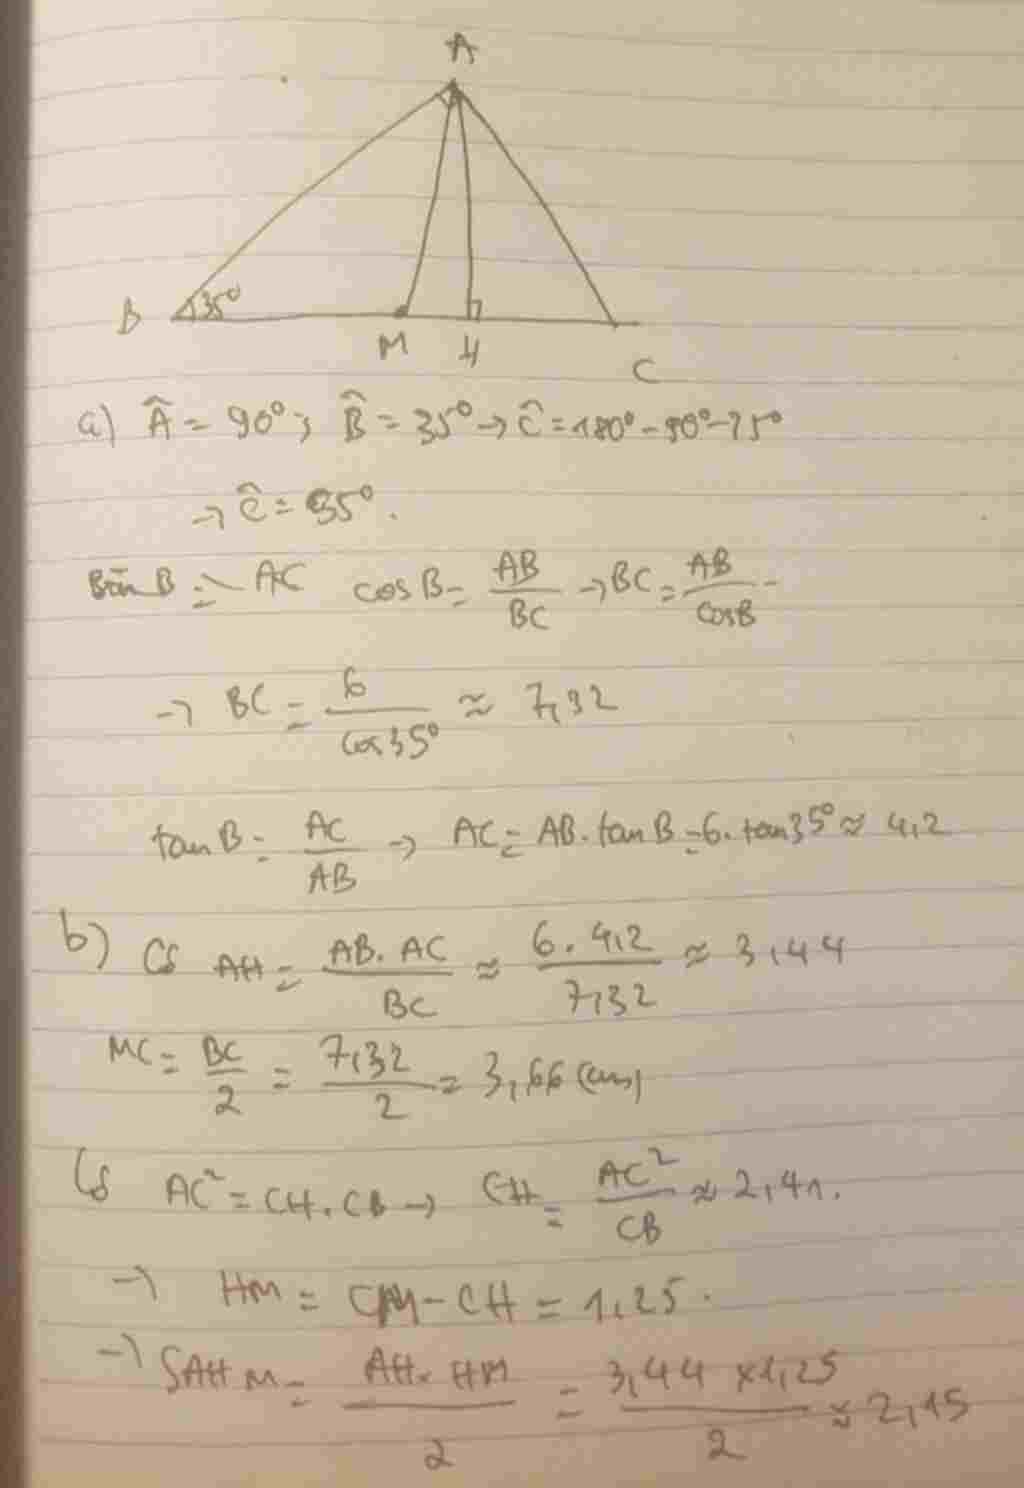 A
B 35° M H C
a) Â = 90°; B̂ = 35° → Ĉ = 180° - 90° - 35°
→ Ĉ = 35°.
B = AC cos B = AB/BC → BC = AB/cosB =
→ BC = 6/cos 35° ≈ 7,32
tan B = AC/AB → AC = AB. tan B = 6. tan 35° ≈ 4,2
b) Có AH = AB. AC/BC ≈ 6. 4,2/7,32 ≈ 3,44
MC = BC/2 = 7,32/2 = 3,66 (cm)
Có AC² = CH. CB → CH = AC²/CB ≈ 2,41.
→ HM = CM - CH = 1,25.
→ SAHM = AH. HM/2 = 3,44 x 1,25/2 ≈ 2,15